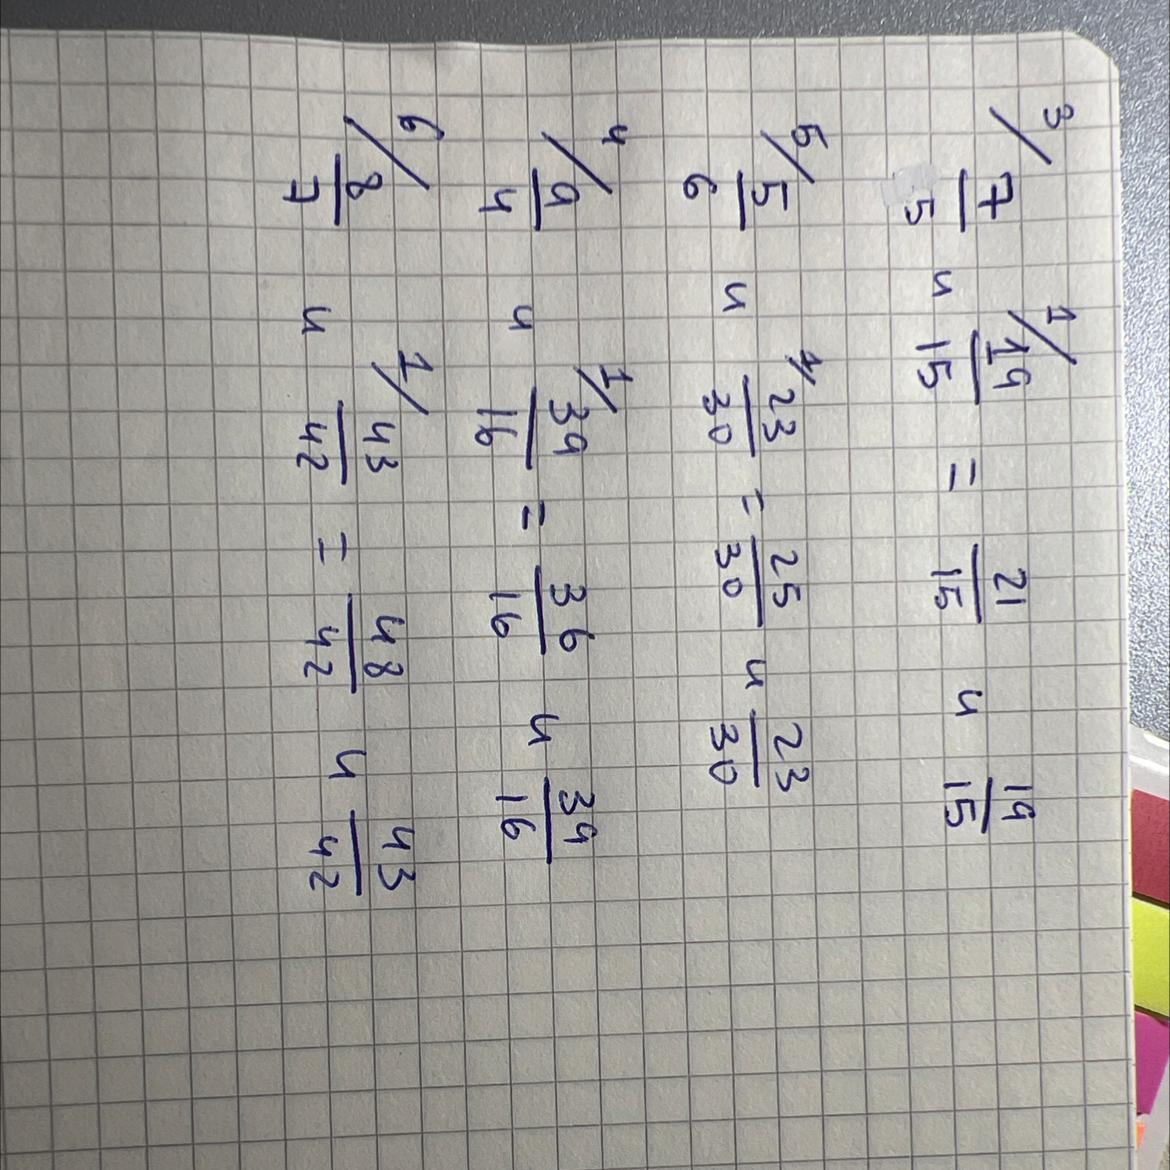 3/ 7/5 и 1/ 19/15 = 21/15 и 19/15
5/ 5/6 и 1/ 23/30 = 25/30 и 23/30
4/ 9/4 и 1/ 39/16 = 36/16 и 39/16
6/ 8/7 и 1/ 43/42 = 48/42 и 43/42